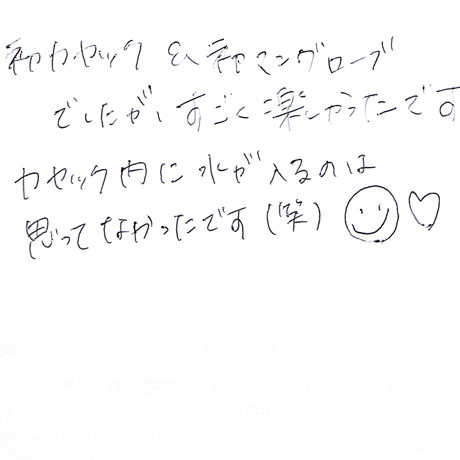 初カヤック & 初マングローブ
でしたが、すごく楽しかったです
カヤック内に水が入るのは
思ってなかったです(笑)